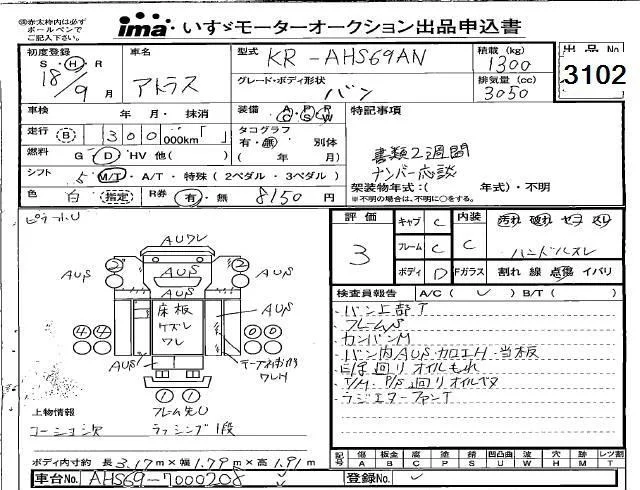 ㊟赤太枠内は必ず
ボールペンで
ご記入下さい。
ima いすゞモーターオークション出品申込書
初度登録 S・H・R 18/9月
車名 アトラス
型式 KR-AHS69AN
積載(kg) 1300
グレード・ボディ形状 バン
排気量(cc) 3050
出品No. 3102
車検 年 月・抹消
装備 A/C P/S P/W
特記事項
走行 B 300 000km「 」
タコグラフ 有・無 別体 ( 年 月)
書類2週間
ナンバー応談
燃料 G D HV 他( )
シフト 5 M/T・A/T・特殊(2ペダル・3ペダル)
架装物年式:( 年式)・不明
※不明の場合は、不明に○をする。
色 白 指定 R券 有・無 8150円
評価 3
キャブ C 内装 C 汚れ 破れ セコ スレ
フレーム C ハンドルスレ
ボディ D Fガラス 割れ 線 点傷 イバリ
検査員報告 A/C( ✓ ) B/T( )
・バン上部T
・フレームS
・カンバンM
・バン内AUS カロエH 当板
・T/M P/S廻りオイルベタ
・ラジエターファンT
AUワレ
AUS
2 2
AUS
AUS
AUS
AUS
床板
ケズレ
ワレ
4 4
0 0
AUS
1 1
フレーム先U
上物情報
ラッシング1段
ボディ内寸約 長3.17m×幅1.79m×高1.91m
記号 傷A 板金B 腐C 塗P 錆S 凹凸曲U 波W 穴H 跡M レツ割T
車台No. AHS69-7000208
登録No.